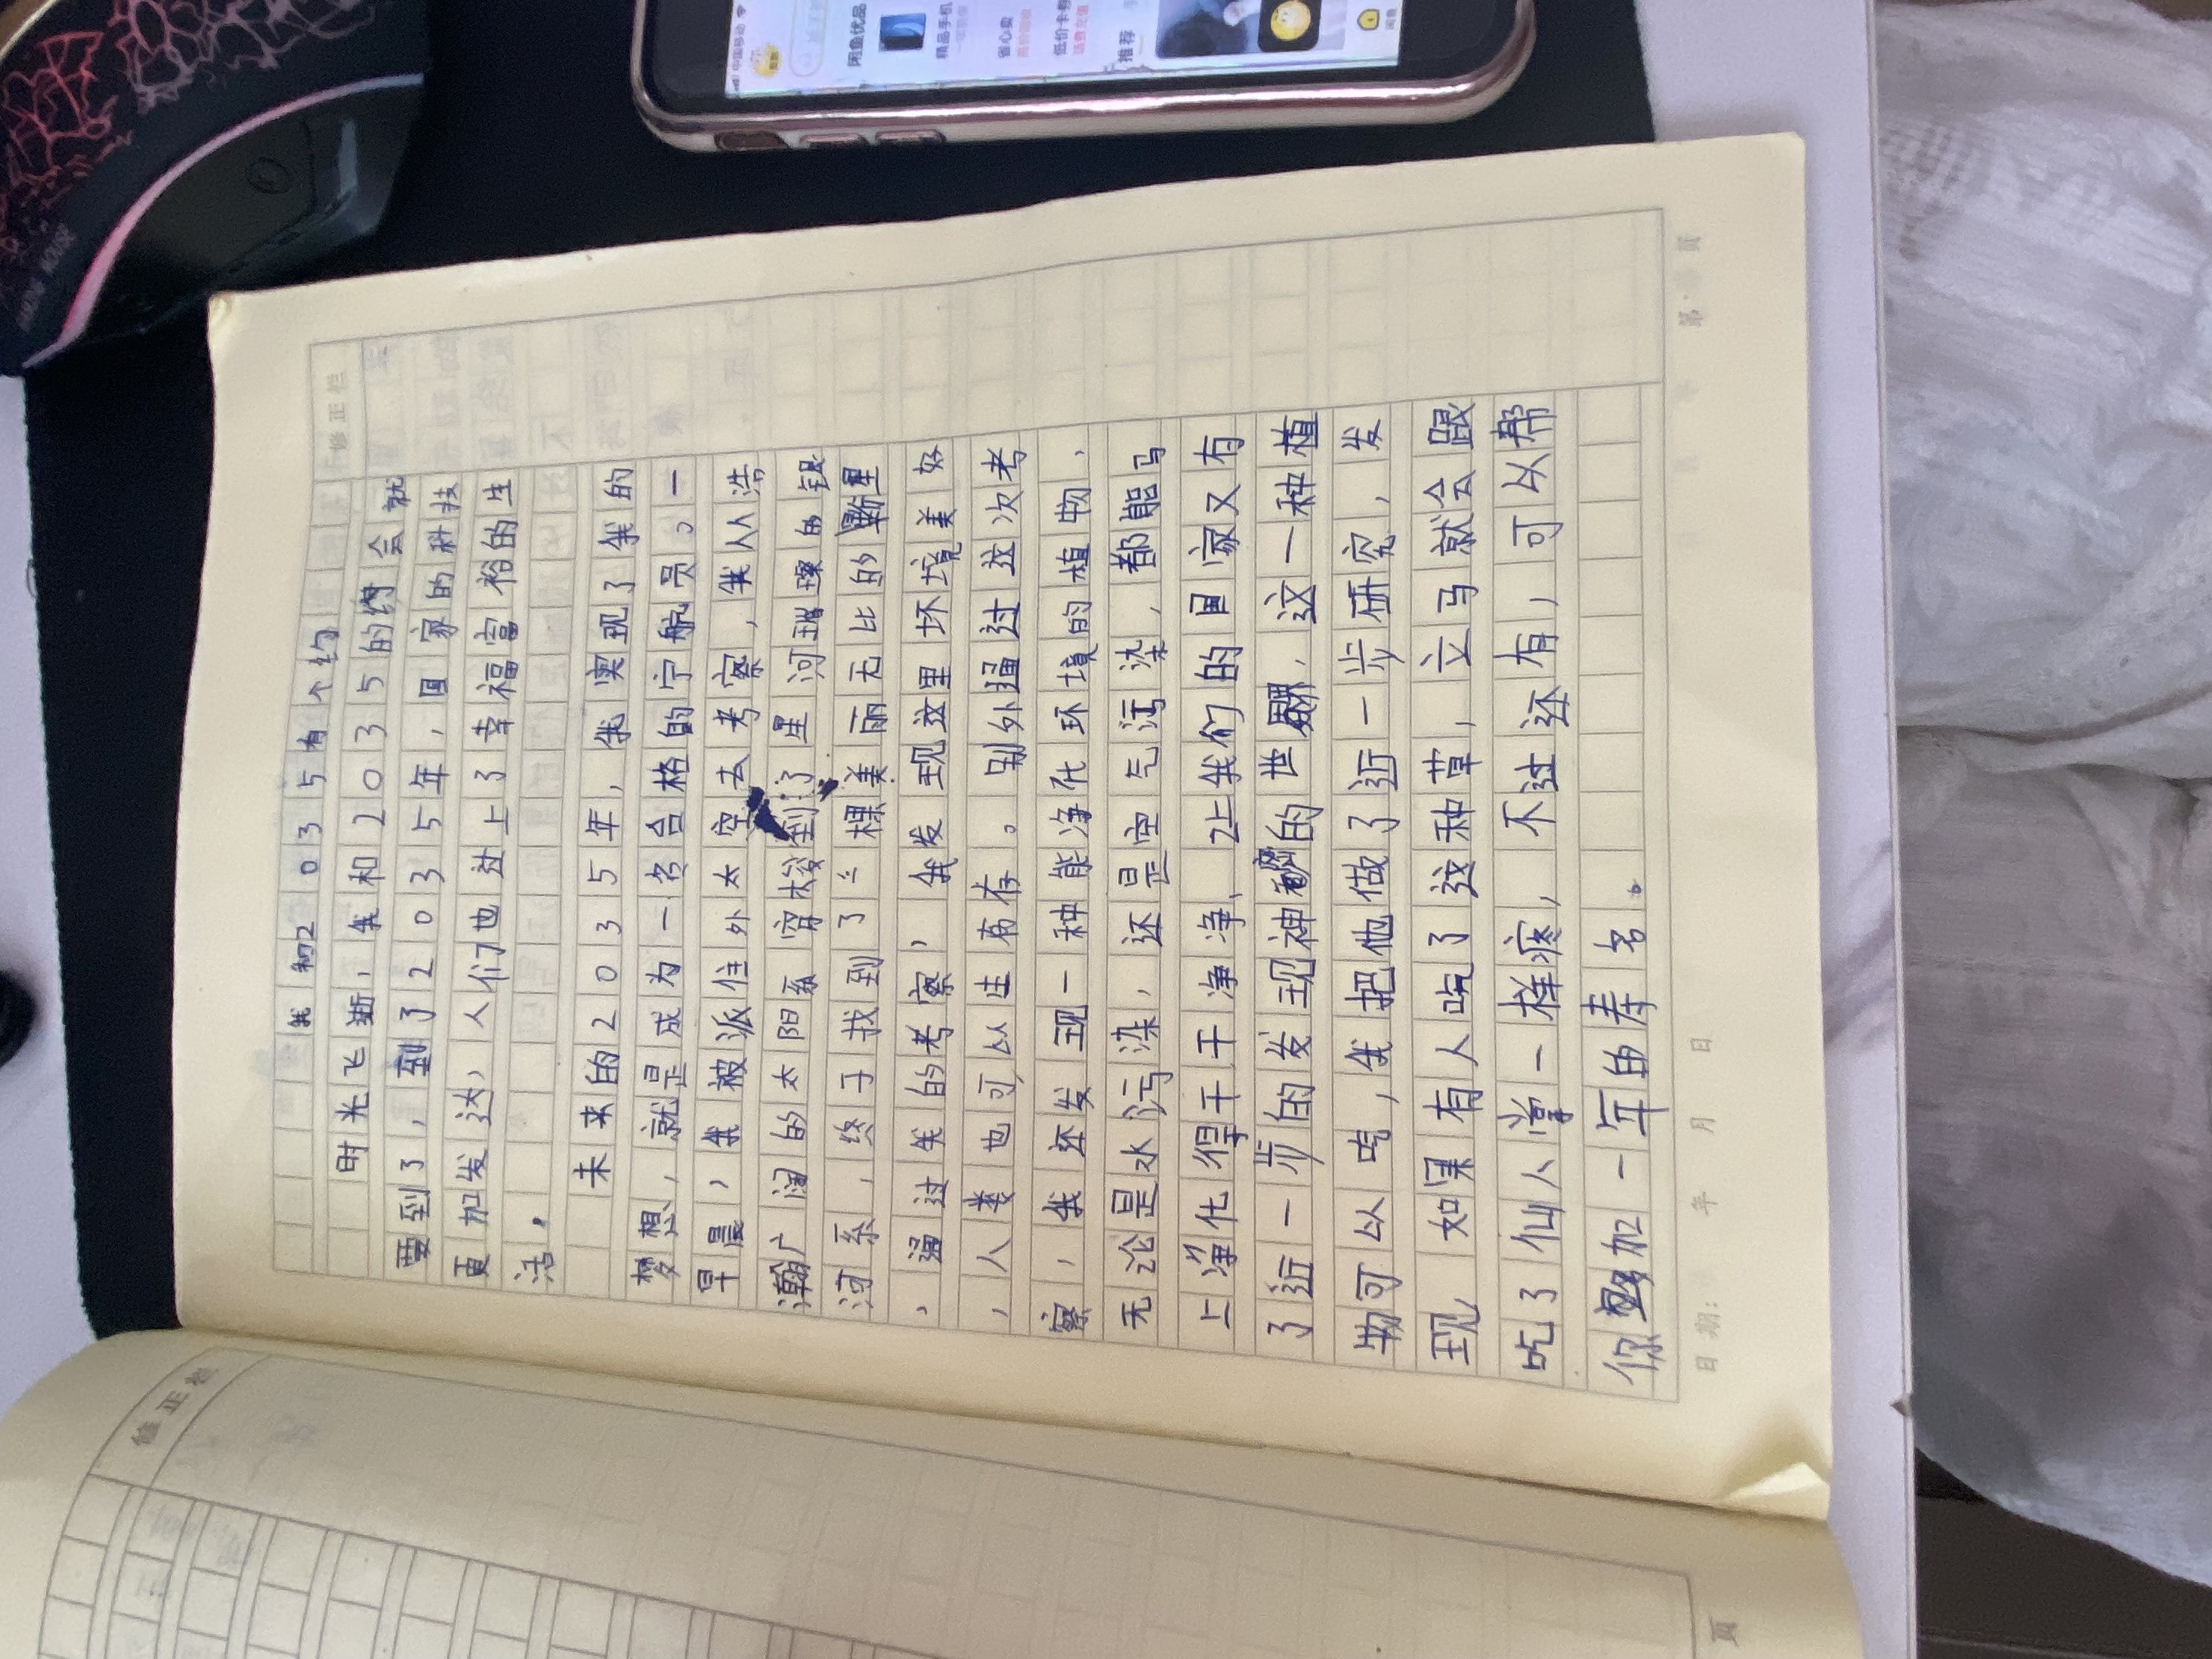 我和2035有个约
时光飞逝，我和2035的约会就
要到了，到了2035年，国家的科技
更加发达，人们也过上了幸福富裕的生
活。
未来的2035年，我实现了我的
梦想，就是成为一名合格的宇航员。一
早晨，我被派住外太空去考察，我从浩
瀚广阔的太阳系穿梭到了星河璀璨的银
河系，终于找到了一棵美丽无比的星
，通过我的考察，我发现这里环境美好
，人类也可以生存。另外通过这次考
察，我还发现一种能净化环境的植物，
无论是水污染，还是空气污染，都能马
上净化得干干净净、让我们的国家又有
了近一步的发现神秘的世界，这一种植
物可以吃，我把他做了近一步研究，发
现，如果有人吃了这种草，立马就会跟
吃了仙人掌一样疼，不过还有，可以帮
你增加一年的寿名。
修正栏
日期：
年 月 日
第 页
修正栏
页
中国移动
闲鱼优品
精品手机
省心卖
低价卡券
话费充值
推荐
闲鱼
MOUSE